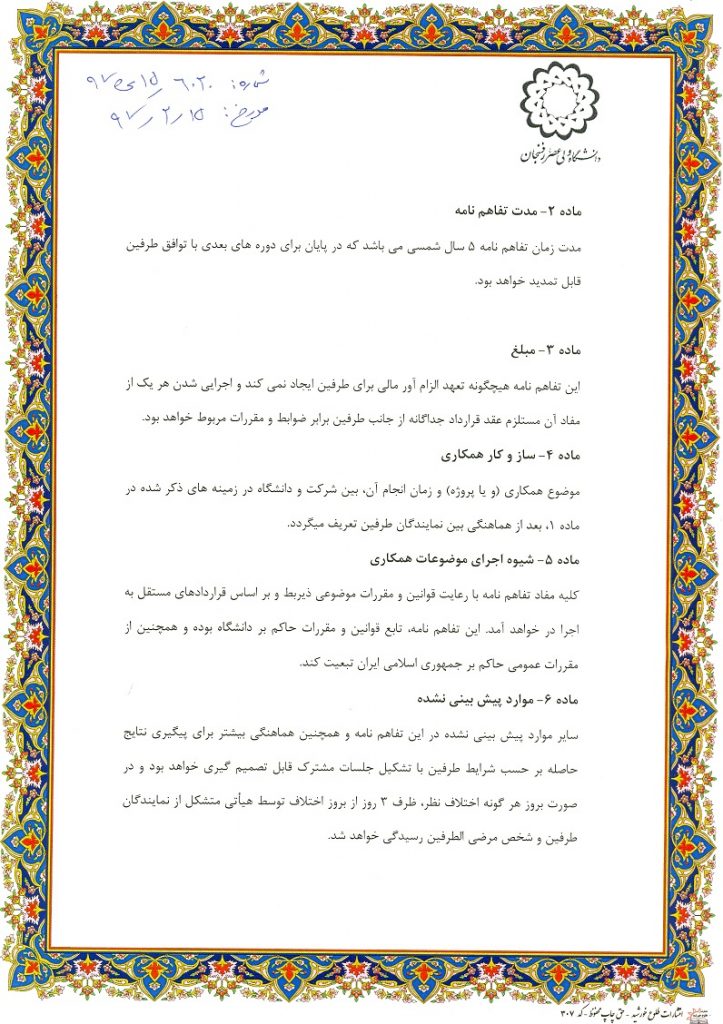 شماره: ۶۰۲۰
مورخ: ۹۷/۲/۱۵
دانشگاه ولی عصر رفسنجان
ماده ۲- مدت تفاهم نامه
مدت زمان تفاهم نامه ۵ سال شمسی می باشد که در پایان برای دوره های بعدی با توافق طرفین
قابل تمدید خواهد بود.
ماده ۳- مبلغ
این تفاهم نامه هیچگونه تعهد الزام آور مالی برای طرفین ایجاد نمی کند و اجرایی شدن هر یک از
مفاد آن مستلزم عقد قرارداد جداگانه از جانب طرفین برابر ضوابط و مقررات مربوط خواهد بود.
ماده ۴- ساز و کار همکاری
موضوع همکاری (و یا پروژه) و زمان انجام آن، بین شرکت و دانشگاه در زمینه های ذکر شده در
ماده ۱، بعد از هماهنگی بین نمایندگان طرفین تعریف میگردد.
ماده ۵- شیوه اجرای موضوعات همکاری
کلیه مفاد تفاهم نامه با رعایت قوانین و مقررات موضوعی ذیربط و بر اساس قراردادهای مستقل به
اجرا در خواهد آمد. این تفاهم نامه، تابع قوانین و مقررات حاکم بر دانشگاه بوده و همچنین از
مقررات عمومی حاکم بر جمهوری اسلامی ایران تبعیت کند.
ماده ۶- موارد پیش بینی نشده
سایر موارد پیش بینی نشده در این تفاهم نامه و همچنین هماهنگی بیشتر برای پیگیری نتایج
حاصله بر حسب شرایط طرفین با تشکیل جلسات مشترک قابل تصمیم گیری خواهد بود و در
صورت بروز هر گونه اختلاف نظر، ظرف ۳ روز از بروز اختلاف توسط هیأتی متشکل از نمایندگان
طرفین و شخص مرضی الطرفین رسیدگی خواهد شد.
انتشارات طلوع خورشید - حق چاپ محفوظ - کد ۳۰۷